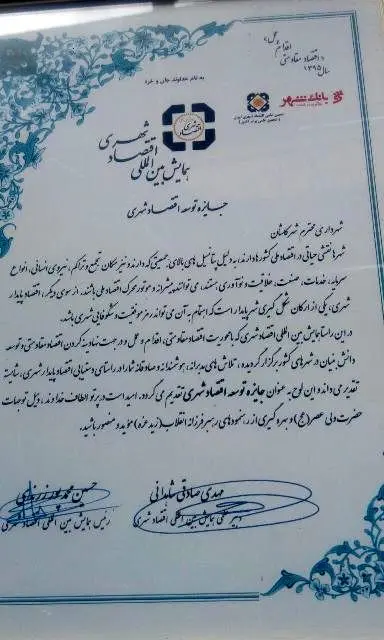 «اقتصاد مقاومتی
اقدام و عمل»
سال ۱۳۹۵
به نام خداوند جان و خرد
بانک شهر
همایش بین المللی
اقتصاد
شهری
جایزه توسعه اقتصاد شهری
شهرداری محترم شهر کاشان
شهرها نقشی حیاتی در اقتصاد ملی کشورها دارند، به دلیل پتانسیل های بالای جمعیتی که دارند و نیز مکان تجمع و تراکم، نیروی انسانی، انواع
سرمایه، خدمات، صنعت، خلاقیت و نوآوری هستند، می‌توانند پیشرانه و موتور محرک اقتصاد ملی باشند. از سوی دیگر، اقتصاد پایدار
شهری، یکی از ارکان شکل گیری شهر پایدار است که اهتمام به آن می تواند رمز موفقیت و شکوفایی شهری باشد.
در این راستا همایش بین المللی اقتصاد شهری که با محوریت اقتصاد مقاومتی، اقدام و عمل و در جهت نهادینه کردن اقتصاد مقاومتی و توسعه
دانش بنیان در شهرهای کشور برگزار گردیده، تلاش های مدبرانه، هوشمندانه و صادقانه شما در راستای دستیابی اقتصاد پایدار شهری، شایسته
تقدیر می داند و این لوح به عنوان جایزه توسعه اقتصاد شهری تقدیم می گردد. امید است در پرتو الطاف خداوند، ذیل توجهات
حضرت ولی عصر (عج) و بهره گیری از رهنمودهای رهبر فرزانه انقلاب (زید عزه) مؤید و منصور باشید.
مهدی صادقی شاهدانی
دبیر علمی همایش بین المللی اقتصاد شهری
حسین محمدپور زرندی
رئیس همایش بین المللی اقتصاد شهری